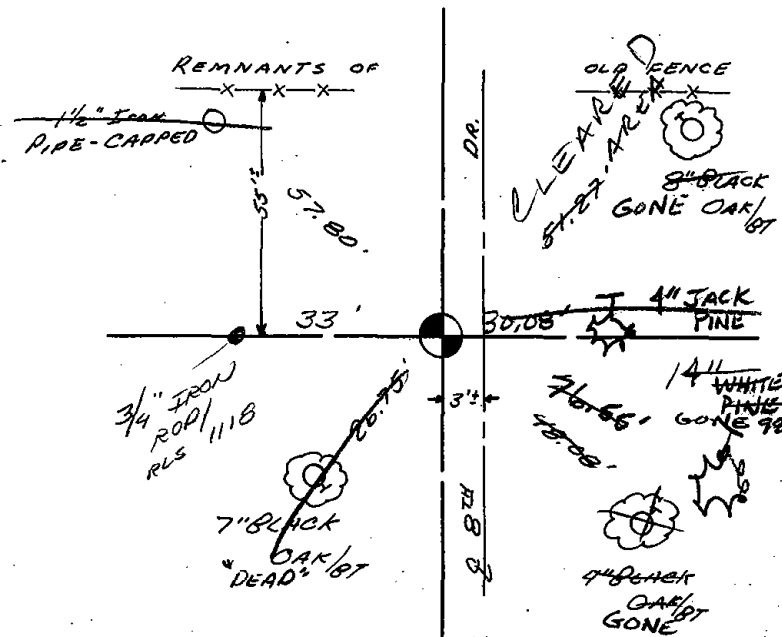 REMNANTS OF
OLD FENCE
1 1/2" IRON
PIPE-CAPPED
55'±
57.80'
DR.
CLEARED
AREA
51.27'
8" BLACK
GONE OAK/BT
33'
30.08'
4" JACK
PINE
3/4" IRON
ROD/
RLS 1118
26.75'
3'±
76.66'
48.08'
14" WHITE
PINE
GONE 98
7" BLACK
OAK/BT
"DEAD"
8TH
9" BLACK
OAK/BT
GONE